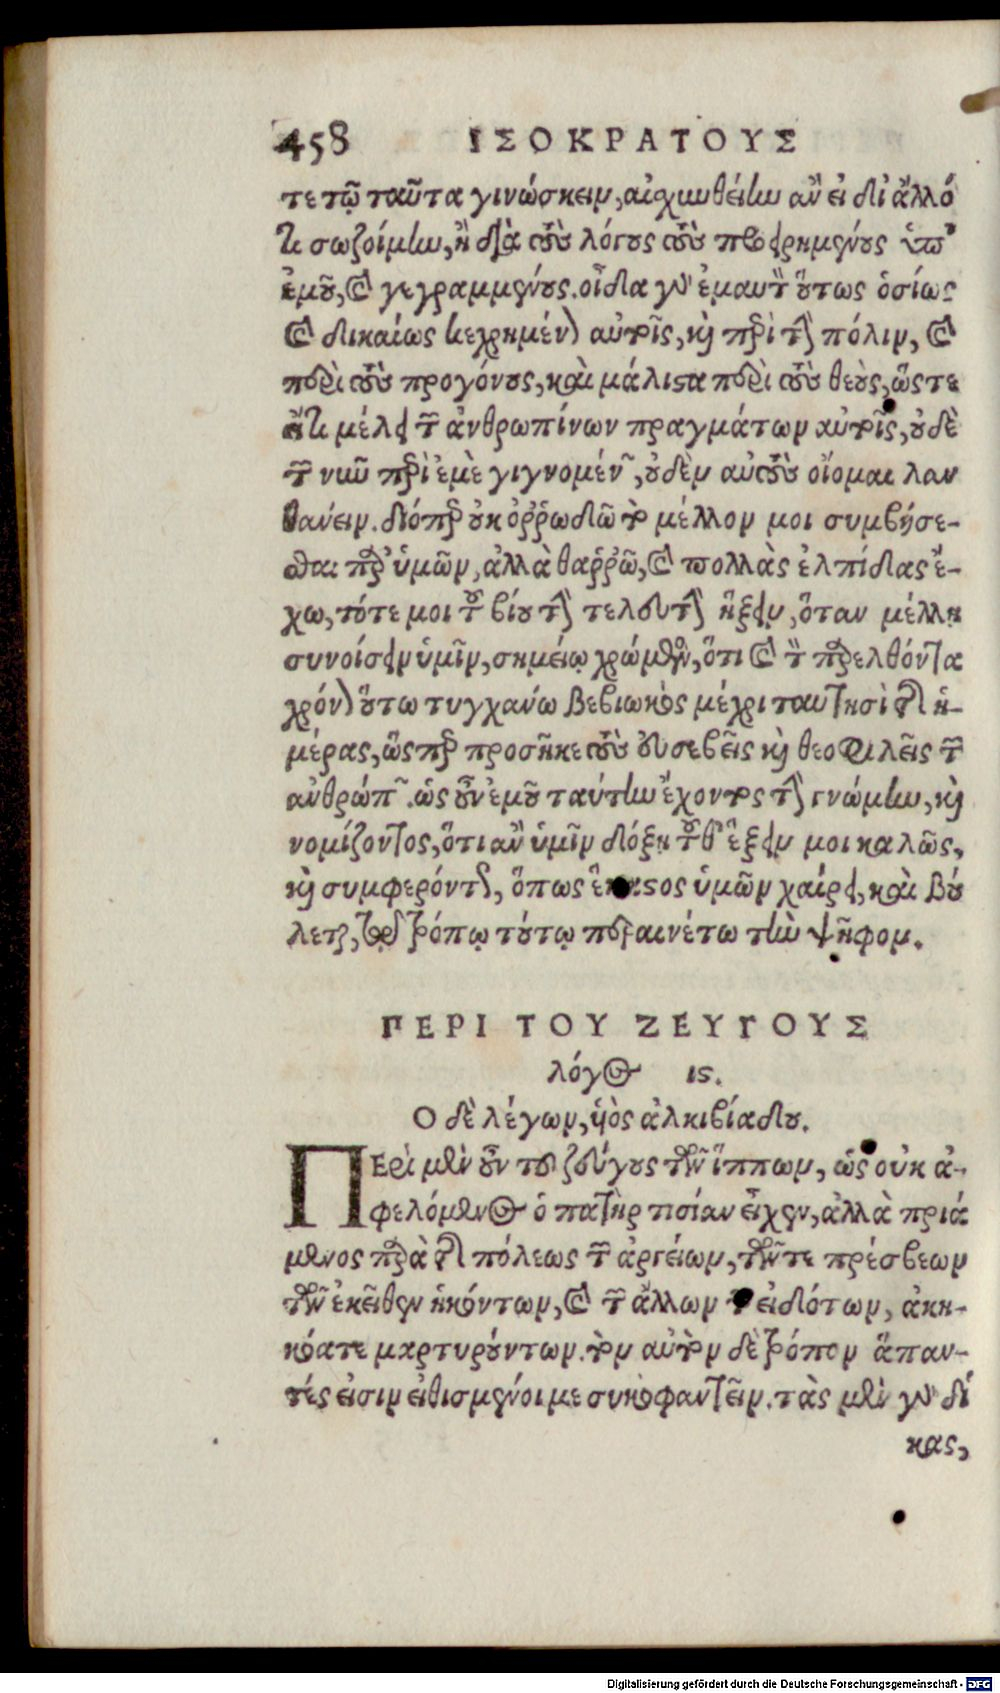 458 ΙΣΟΚΡΑΤΟΥΣ
τε τῷ ταῦτα γινώσκειν, αἰσχυνθείην ἂν εἰ δι' ἄλλό
τι σωζοίμην, ἢ διὰ τοὺς λόγους τοὺς προειρημένους ὑπ'
ἐμοῦ, καὶ γεγραμμένους. οἶδα γὰρ ἐμαυτὸν οὕτως ὁσίως
καὶ δικαίως κεχρημένον αὐτοῖς, καὶ περὶ τὴν πόλιν, καὶ
περὶ τοὺς προγόνους, καὶ μάλιστα περὶ τοὺς θεοὺς, ὥστε
εἴ τι μέλει τῶν ἀνθρωπίνων πραγμάτων αὐτοῖς, οὐδὲ
τῶν νῦν περὶ ἐμὲ γιγνομένων, οὐδὲν αὐτοὺς οἴομαι λαν
θάνειν. διόπερ οὐκ ὀῤῥωδῶ τὸ μέλλον μοι συμβήσε-
σθαι παρ' ὑμῶν, ἀλλὰ θαῤῥῶ, καὶ πολλὰς ἐλπίδας ἔ-
χω, τότε μοι τοῦ βίου τὴν τελευτὴν ἥξειν, ὅταν μέλλῃ
συνοίσειν ὑμῖν, σημείῳ χρώμενος, ὅτι καὶ τὸν παρελθόντα
χρόνον οὕτω τυγχάνω βεβιωκὼς μέχρι ταυτησὶ τῆς ἡ-
μέρας, ὥσπερ προσῆκε τοὺς εὐσεβεῖς καὶ θεοφιλεῖς τῶν
ἀνθρώπων. ὡς οὖν ἐμοῦ ταύτην ἔχοντος τὴν γνώμην, καὶ
νομίζοντος, ὅτι ἂν ὑμῖν δόξῃ τοῦθ' ἕξειν μοι καλῶς,
καὶ συμφερόντως, ὅπως ἕκαστος ὑμῶν χαίρει, καὶ βού
λεται, τῷ τρόπῳ τούτῳ περαινέτω τὴν ψῆφον.
ΠΕΡΙ ΤΟΥ ΖΕΥΓΟΥΣ
λόγος ις.
Ο δὲ λέγων, υἱὸς ἀλκιβίαδου.
ΠΕρὶ μὲν οὖν τοῦ ζεύγους τῶν ἵππων, ὡς οὐκ ἀ-
φελόμενος ὁ πατὴρ τισίαν εἶχεν, ἀλλὰ πριά
μενος παρὰ τῆς πόλεως τῶν ἀργείων, τῶν τε πρέσβεων
τῶν ἐκεῖθεν ἡκόντων, καὶ τῶν ἄλλων τῶν εἰδότων, ἀκη-
κόατε μαρτυρούντων. τὸν αὐτὸν δὲ τρόπον ἅπαν-
τές εἰσιν εἰθισμένοι με συκοφαντεῖν. τὰς μὲν γὰρ δί
κας,
Digitalisierung gefördert durch die Deutsche Forschungsgemeinschaft - DFG